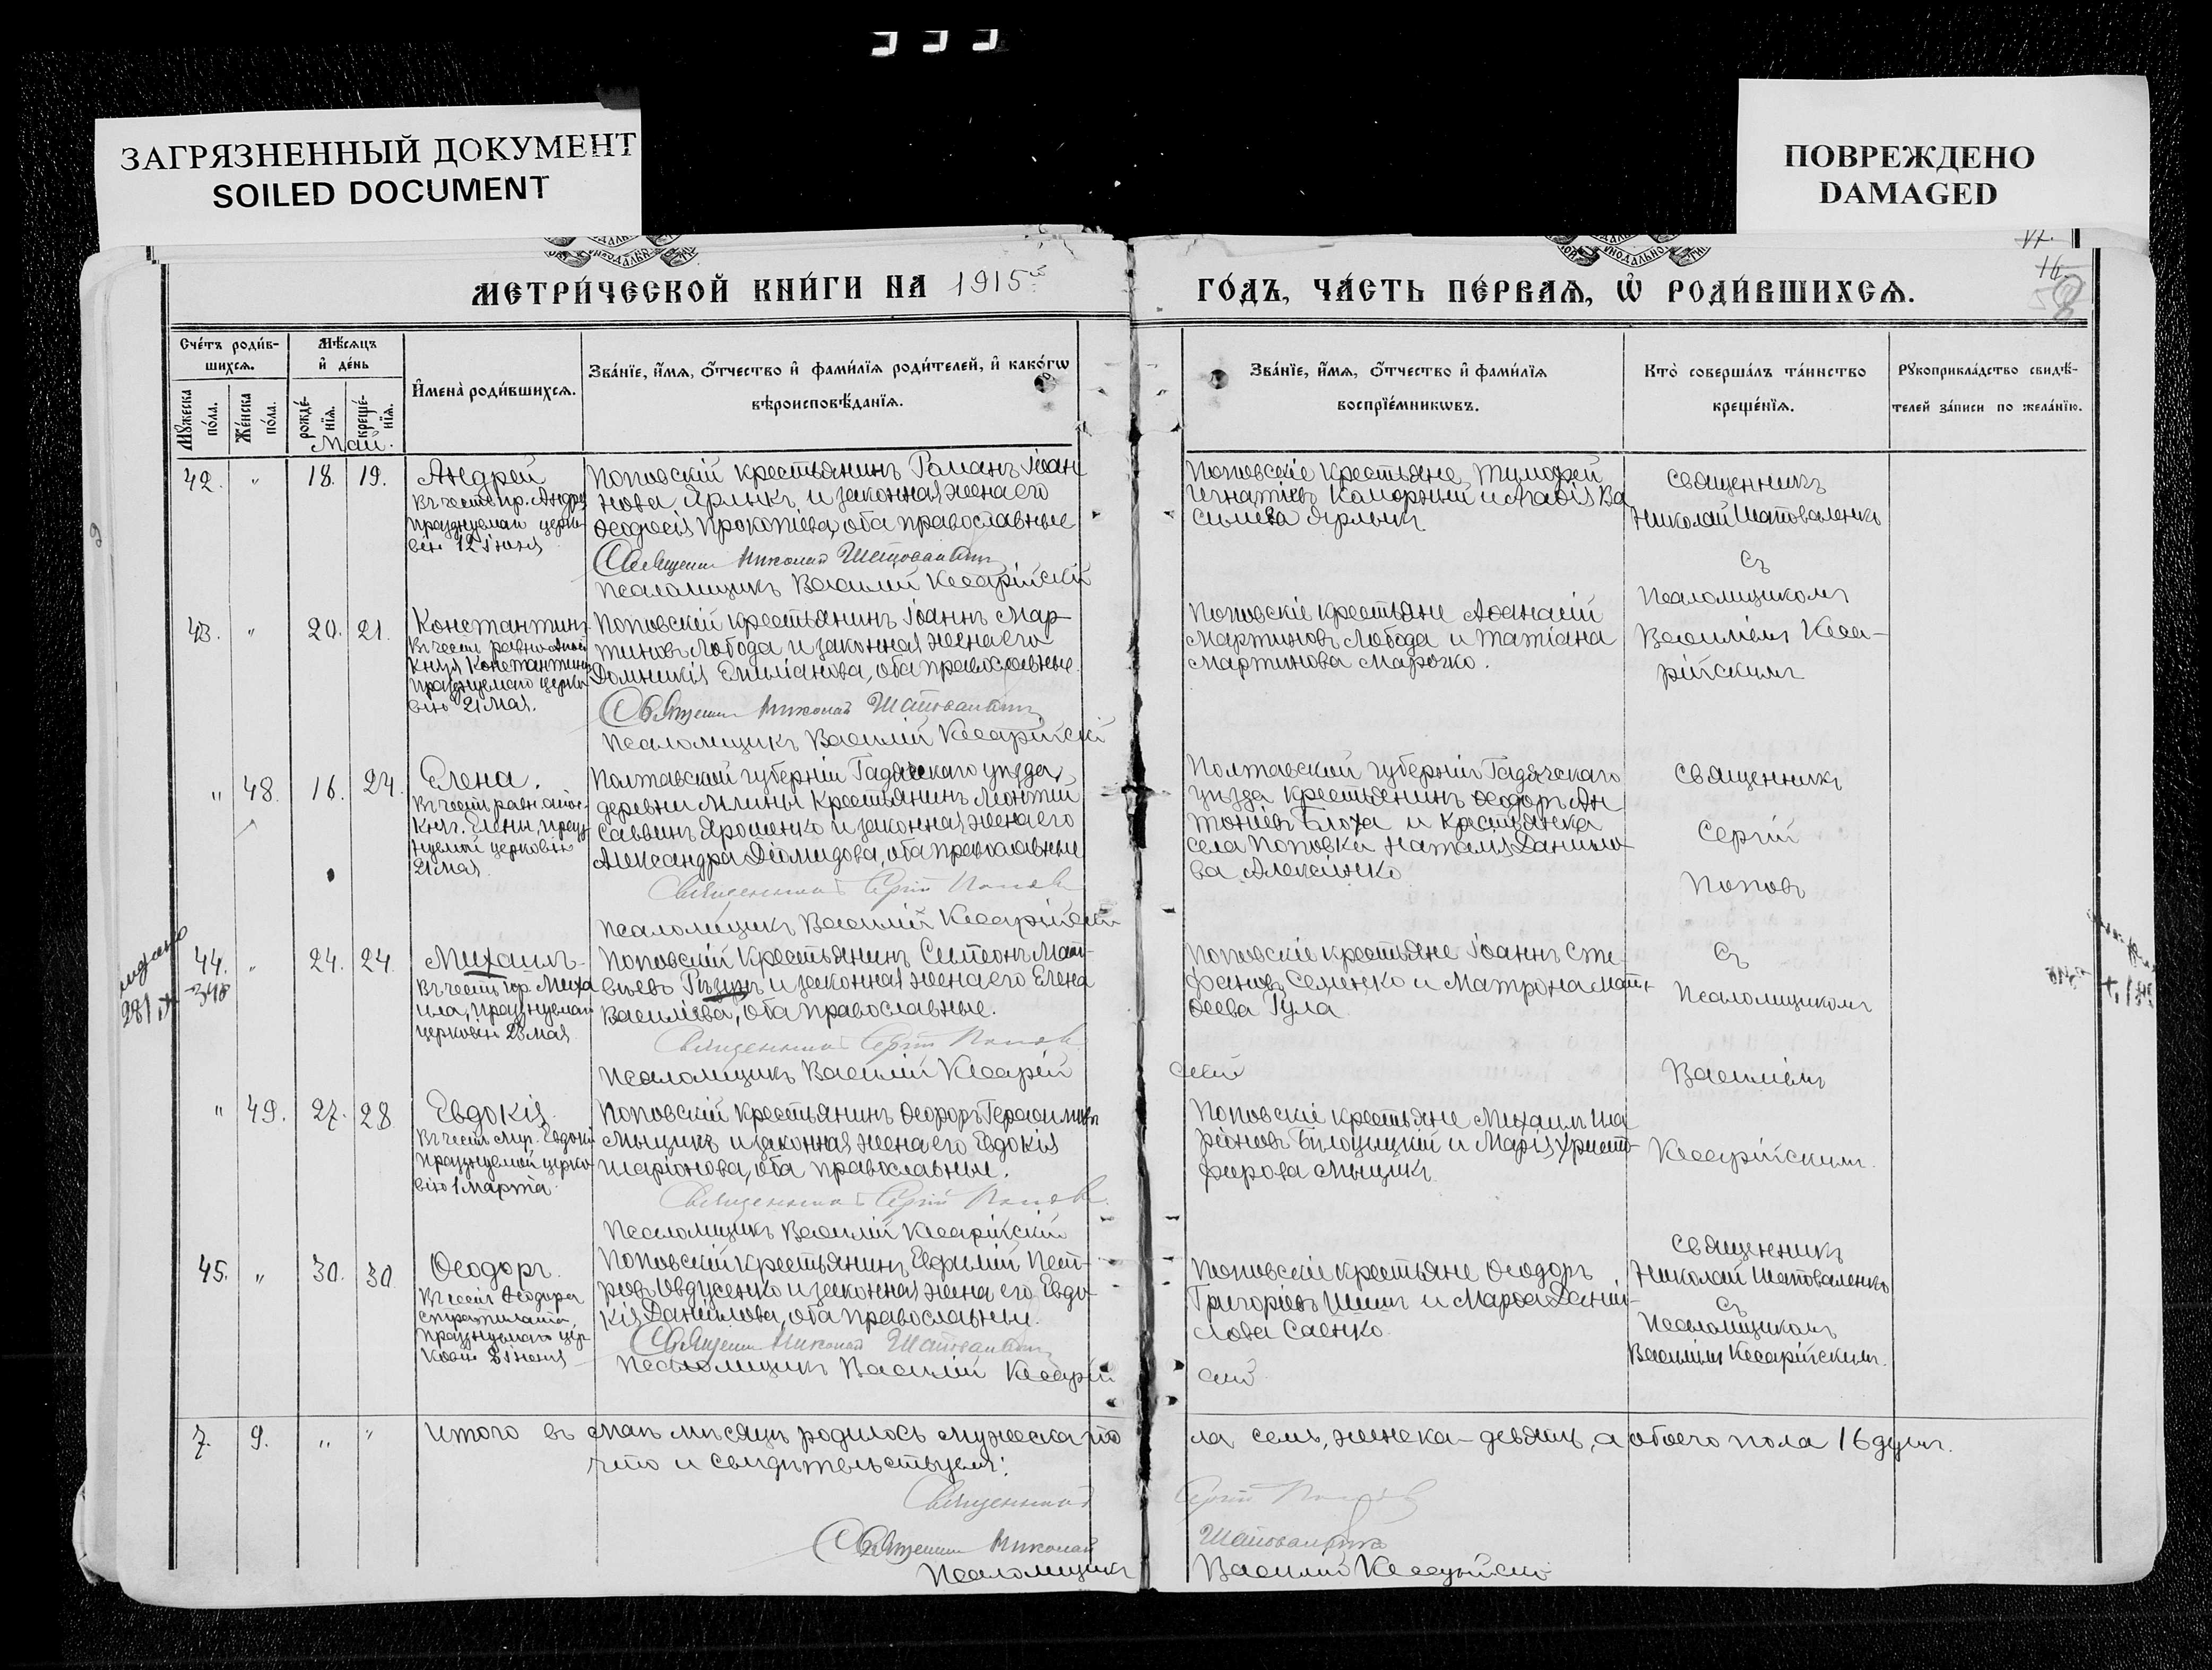 ЗАГРЯЗНЕННЫЙ ДОКУМЕНТ
SOILED DOCUMENT
ПОВРЕЖДЕНО
DAMAGED
МЕТРИ́ЧЕСКОЙ КНИ́ГИ НА 1915
ГО́ДЪ, ЧА́СТЬ ПЕ́РВАѦ, Ѡ҆ РОДИ́ВШИХСѦ.
16.
Сче́тъ роди́в-
шихсѧ.
Мꙋ́жеска по́ла.
Же́нска по́ла.
Мѣ́сѧцъ
и҆ де́нь
рожде́-нїѧ.
креще́-нїѧ.
И҆мена̀ роди́вшихсѧ.
Зва́нїе, и҆́мѧ, ѻ҆́тчество и҆ фами́лїѧ роди́телей, и҆ како́гѡ
вѣроисповѣ́данїѧ.
Зва́нїе, и҆́мѧ, ѻ҆́тчество и҆ фами́лїѧ
воспрїе́мникѡвъ.
Кто̀ соверша́лъ та́инство
креще́нїѧ.
Рꙋкоприкла́дство свидѣ́-
телей за́писи по жела́нїю.
Май.
42. " 18. 19. Андрей
въ честь пр. Андрея
празднуемаго церко-
вію 12 Іюня
Поповскій крестьянинъ Романъ Іоан
новъ Ярлыкъ и законная жена его
Ѳеодосія Прокопіева, оба православные
Священникъ Николай Шаповаленко
Псаломщикъ Василій Кесарійскій
Поповскіе крестьяне Тимоѳей
Игнатіевъ Коморный и Агаѳія Ва
сильева Ярлыкъ
Священникъ
Николай Шаповаленко
съ
Псаломщикомъ
Василіемъ Кеса-
рійскимъ
43. " 20. 21. Константинъ
Въ честь равноапост
князя Константина
празднуемаго церко
вію 21 Мая.
Поповскій крестьянинъ Іоаннъ Мар-
тиновъ Лобода и законная жена его
Домникія Емиліанова, оба православные.
Священникъ Николай Шаповаленко
Псаломщикъ Василій Кесарійскій
Поповскіе крестьяне Аѳанасій
Мартиновъ Лобода и Татіана
Мартинова Марочко.
" 48. 16. 24. Елена.
Въ честь равн. апос.
княг. Елены, празд-
нуемой церковію
21 Мая
Полтавской губерніи Гадячскаго уѣзда,
деревни Млины крестьянинъ Леонтій
Саввинъ Ярошенко и законная жена его
Александра Діомидова, оба православные
Священникъ Сергій Поповъ
Псаломщикъ Василій Кесарійскій
Полтавской губерніи Гадячскаго
уѣзда крестьянинъ Ѳеодоръ Ан
тоніевъ Блоха и крестьянка
села Поповки Наталія Данило-
ва Алексѣенко
Священникъ
Сергій
Поповъ
съ
Псаломщикомъ
Василіемъ
Кесарійскимъ.
281
44. " 24. 24. Михаилъ
348
Въ честь пр. Миха
ила, празднуемаго
церковію 23 Мая
Поповскій крестьянинъ Симеонъ Мат-
вѣевъ и законная жена его Елена
Василіева, оба православные.
Священникъ Сергій Поповъ
Псаломщикъ Василій Кесарій
скій
Поповскіе крестьяне Іоаннъ Сте
фановъ Семенко и Матрона Мат-
ѳеева Гула
" 49. 27. 28 Евдокія.
Въ честь мир. Евдокіи
празднуемой церко-
вію 1 Марта
Поповскій крестьянинъ Ѳеодоръ Герасимовъ
Мыщикъ и законная жена его Евдокія
Иларіонова, оба православные.
Священникъ Сергій Поповъ
Псаломщикъ Василій Кесарійскій
Поповскіе крестьяне Михаилъ Ила
ріоновъ Білоцицкій и Марія Христо-
форова Мыщикъ
45. " 30. 30 Ѳеодоръ.
Въ честь Ѳеодора
стратилата,
празднуемаго цер-
ковію 8 Іюня
Поповскій крестьянинъ Евѳимій Пет-
ровъ Овдусенко и законная жена его Евдо-
кія Даніилова, оба православные.
Священникъ Николай Шаповаленко
Псаломщикъ Василій Кесарій
скій
Поповскіе крестьяне Ѳеодоръ
Григоріевъ Шишъ и Марѳа Даніи-
лова Саенко.
Священникъ
Николай Шаповаленко
съ
Псаломщикомъ
Василіемъ Кесарійскимъ.
7. 9. " " Итого въ Маѣ мѣсяцѣ родилось мужеска по
ла семь, женска - девять, а обоего пола 16 душъ.
что и свидѣтельствуемъ:
Священникъ Сергій Поповъ
Священникъ Николай Шаповаленко
Псаломщикъ Василій Кесарійскій